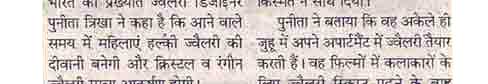 भारत की प्रख्यात ज्वेलरी डिजाइनर
पुनीता त्रिखा ने कहा है कि आने वाले
समय में महिलाएं हल्की ज्वैलरी की
दीवानी बनेगी और क्रिस्टल व रंगीन
किस्मत ने साथ दिया।
पुनीता ने बताया कि वह अकेले ही
जुहू में अपने अपार्टमेंट में ज्वैलरी तैयार
करती हैं। वह फिल्मों में कलाकारों के